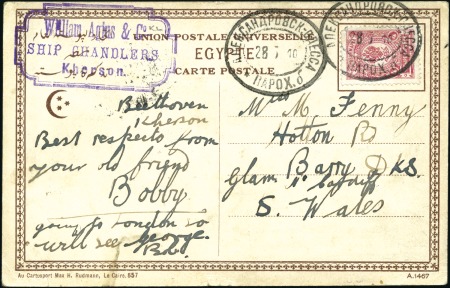 William Agius & Co
SHIP CHANDLERS
Kherson.
UNION POSTALE UNIVERSELLE
EGYPTE
CARTE POSTALE
АЛЕКСАНДРОВСК-ОДЕССА
28
ПАРОХ.
АЛЕКСАНДРОВСК-ОДЕССА
28
ПАРОХ.
Beethoven
Kherson
Best respects from
your old friend
Bobby
going to London so
will see George.
Bob
Miss M. Fenny
Hotton Rd
Barry Dks.
Glam. Cardiff
S. Wales
Au Cartosport Max H. Rudmann, Le Caire. 557
A.1467